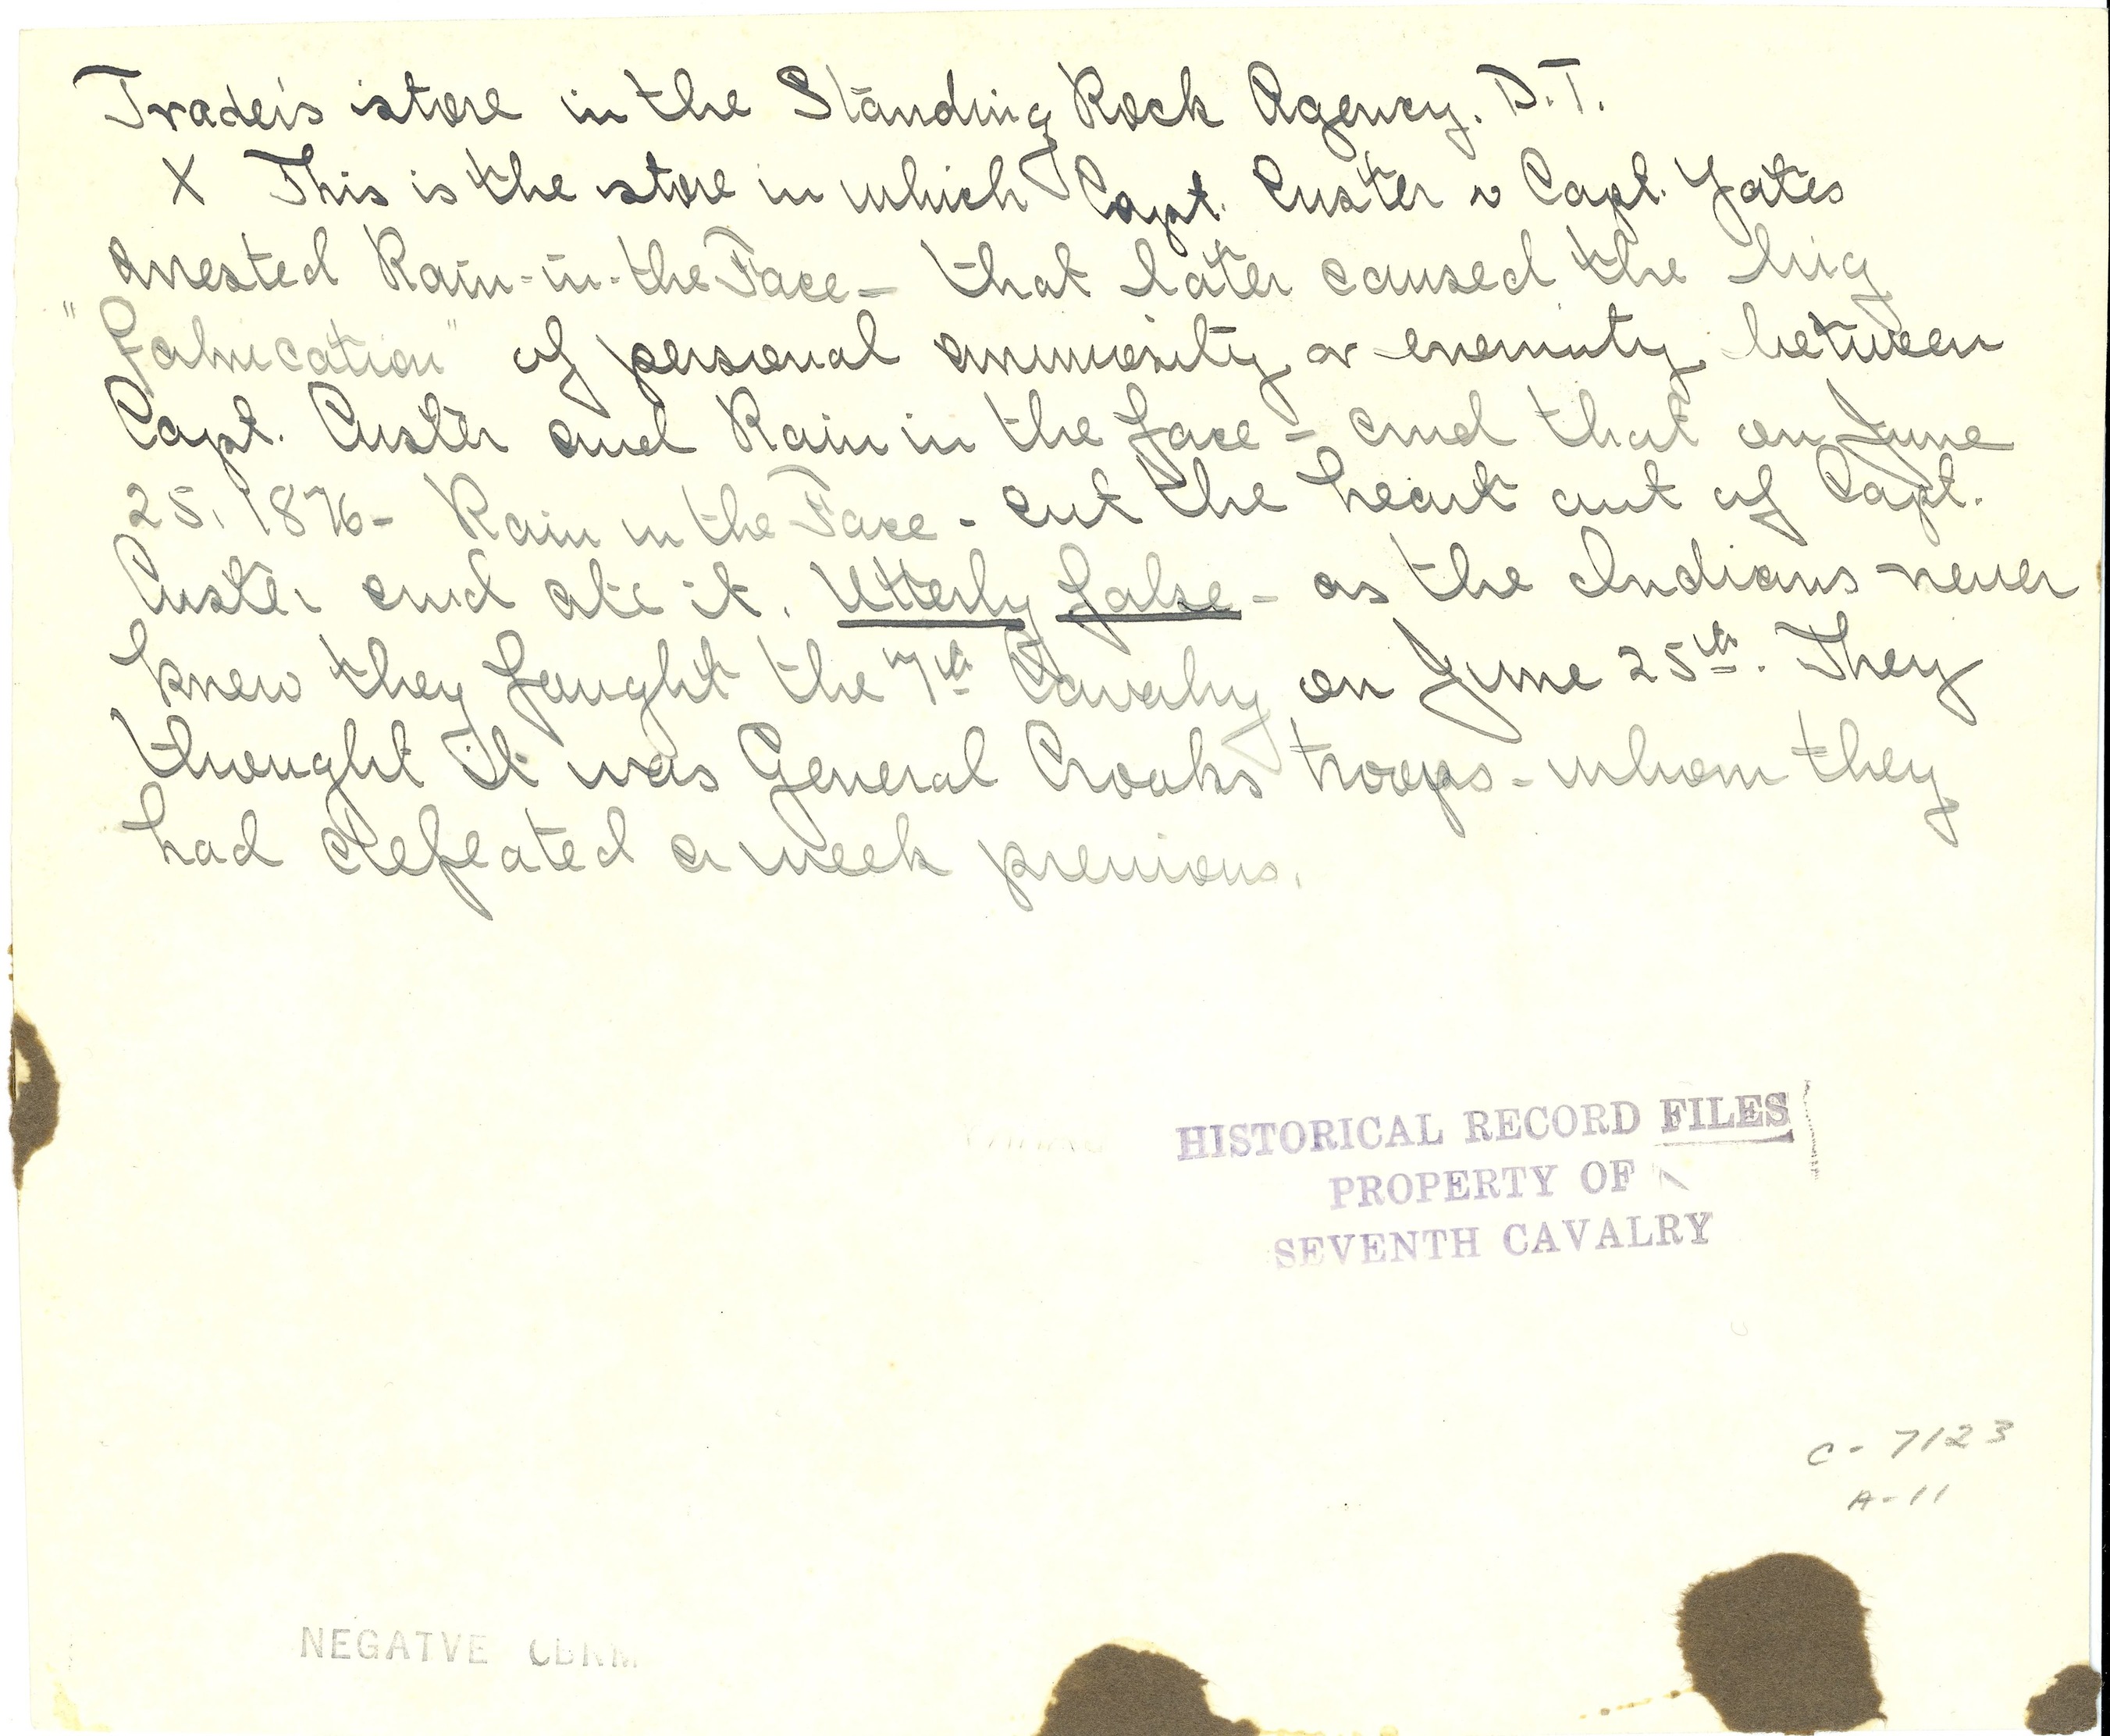 Trader's store in the Standing Rock Agency. D.T.
X This is the store in which Capt. Custer & Capt. Yates
arrested Rain-in-the Face - that later caused the big
"fabrication" of personal animosity or enemnity between
Capt. Custer and Rain in the face - and that on June
25, 1876 - Rain in the Face - cut the heart out of Capt.
Custer and ate it. Utterly false - as the Indians never
knew they fought the 7th Cavalry on June 25th. They
thought it was General Crooks troops - whom they
had defeated a week previous.
HISTORICAL RECORD FILES
PROPERTY OF
SEVENTH CAVALRY
C-7123
A-11
NEGATVE